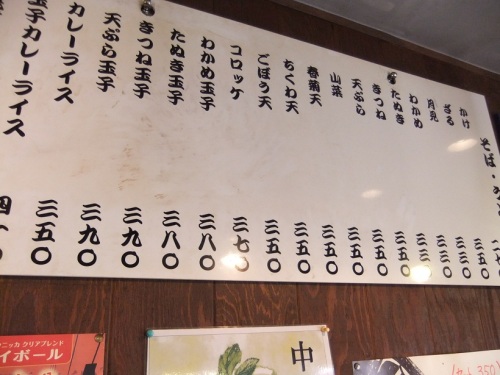 そば・
かけ 二七〇
ざる 三五〇
月見 三三〇
わかめ 三三〇
たぬき 三三〇
きつね 三五〇
天ぷら 三五〇
山菜 三五〇
春菊天 三五〇
ちくわ天 三五〇
ごぼう天 三五〇
コロッケ 三七〇
わかめ玉子 三八〇
たぬき玉子 三八〇
きつね玉子 三九〇
天ぷら玉子 三九〇
カレーライス 三五〇
玉子カレーライス 四一〇
ニッカ クリアブレンド
イボール
中